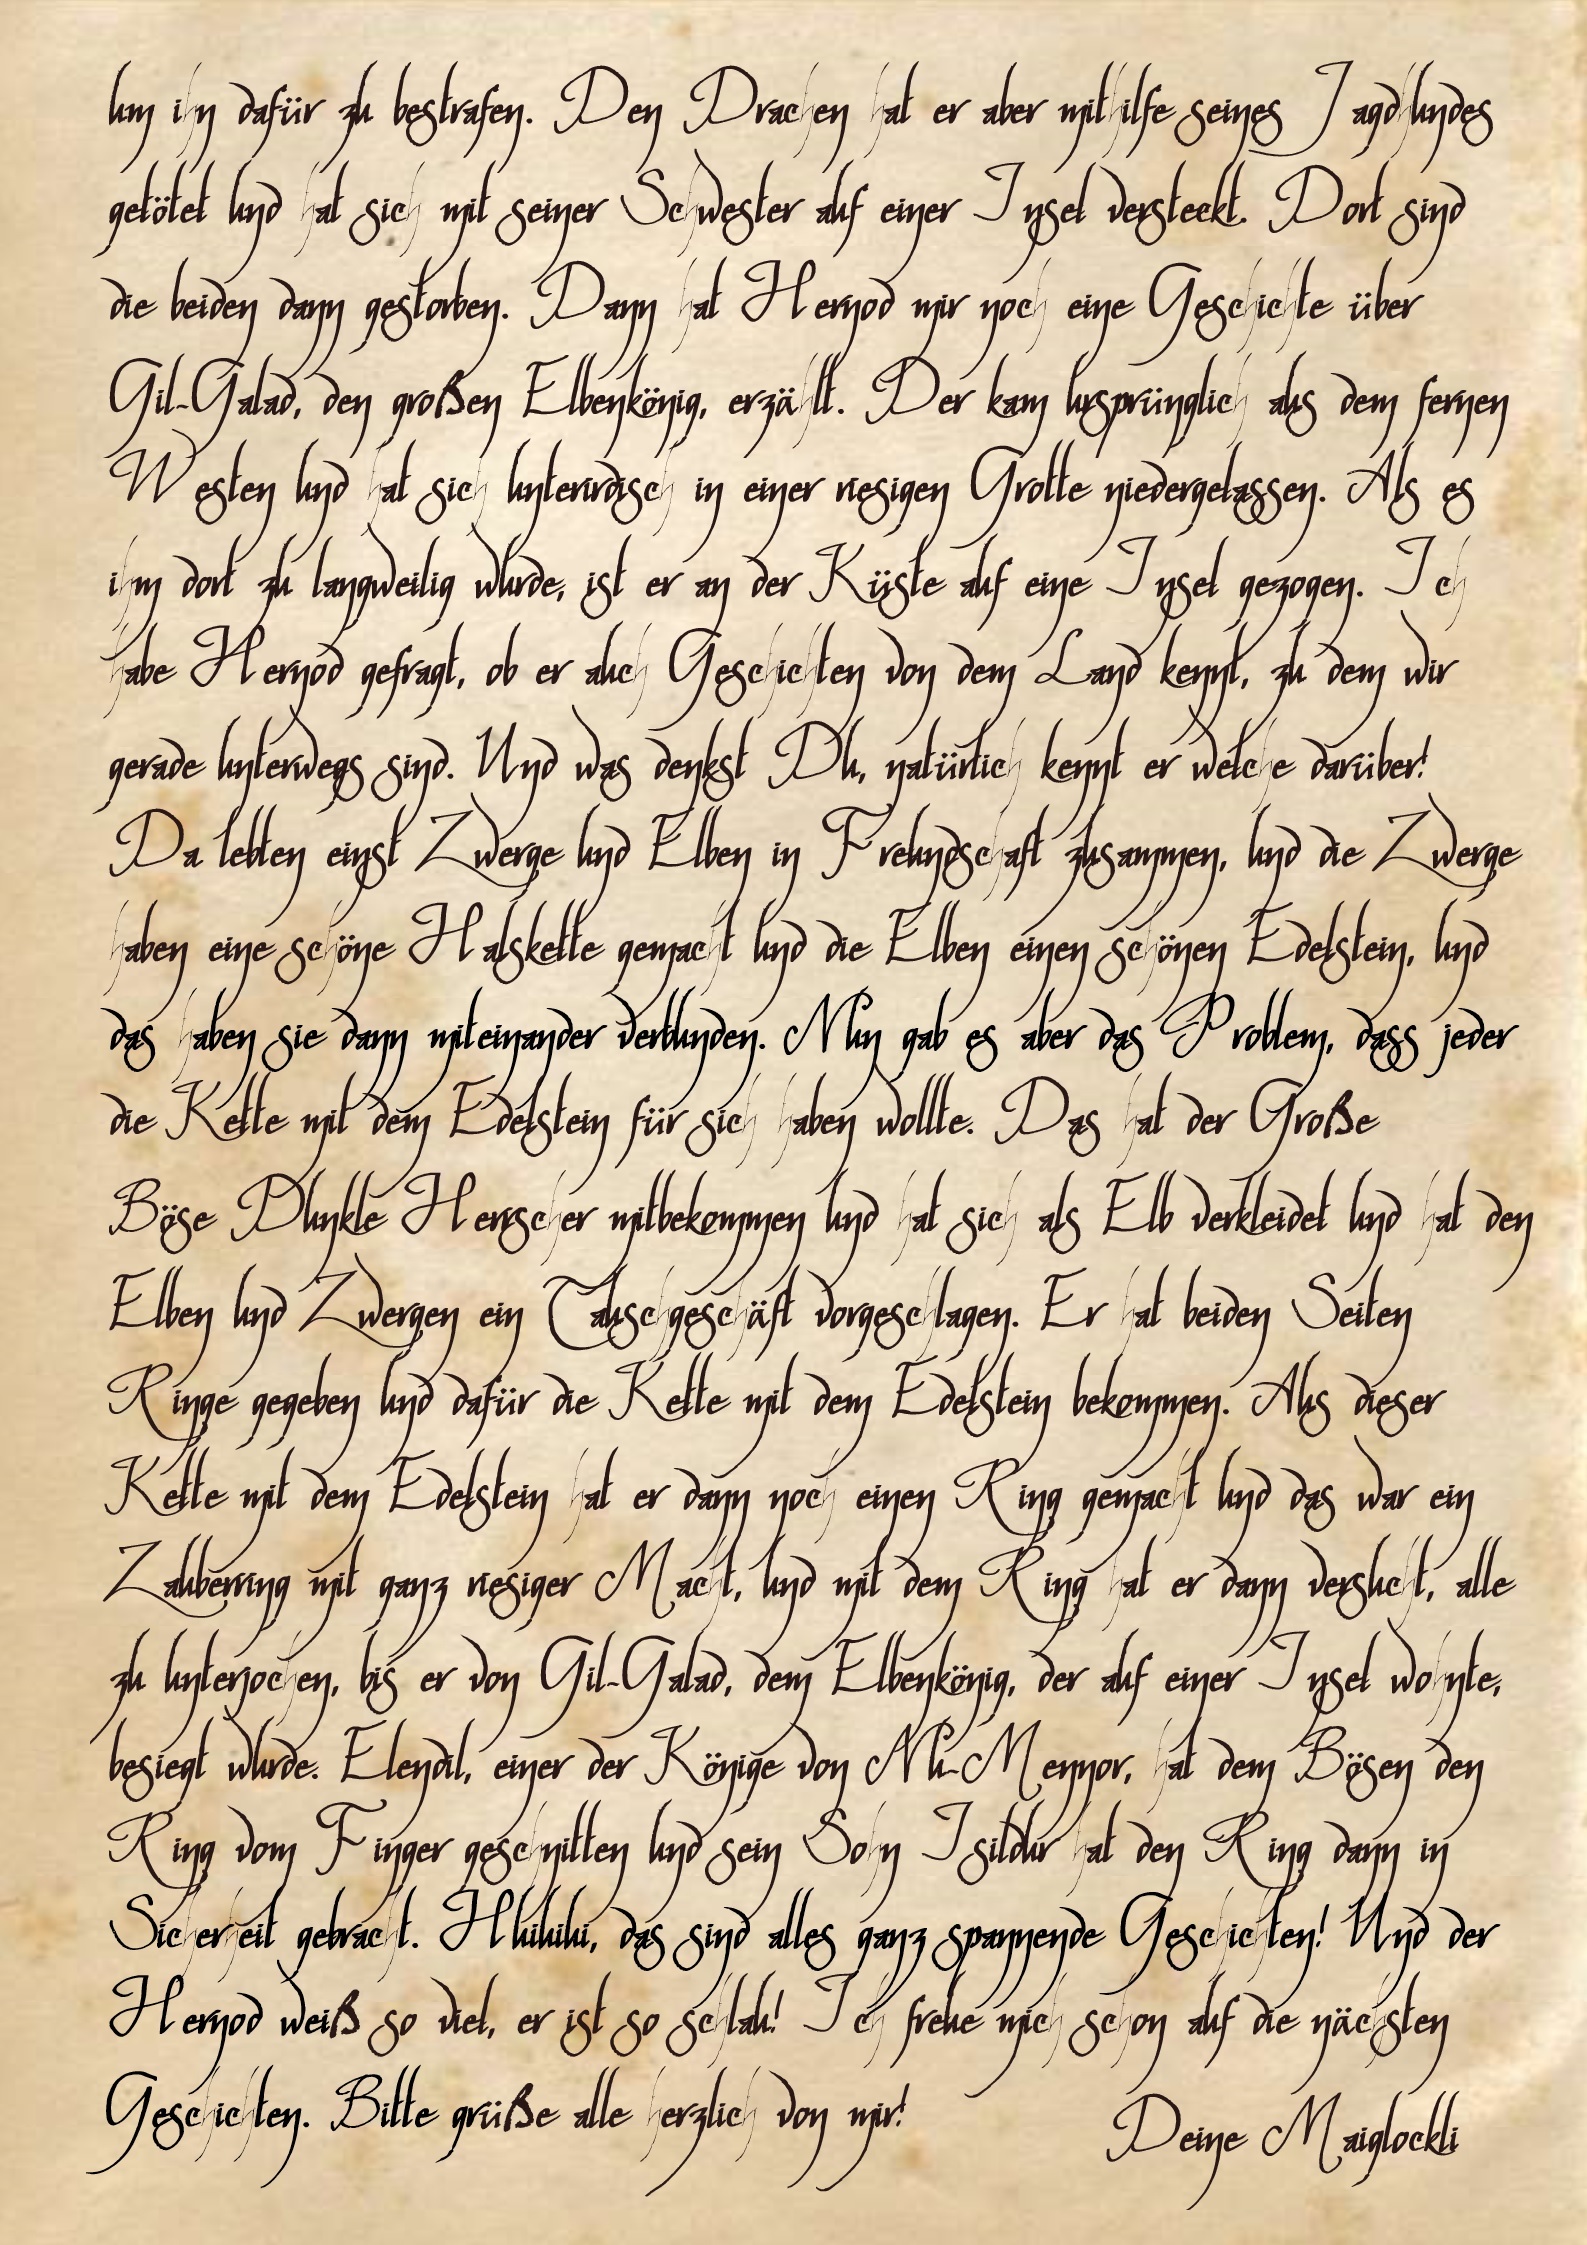 um ihn dafür zu bestrafen. Den Drachen hat er aber mithilfe seines Jagdhundes
getötet und hat sich mit seiner Schwester auf einer Insel versteckt. Dort sind
die beiden dann gestorben. Dann hat Hernod mir noch eine Geschichte über
Gil-Galad, den großen Elbenkönig, erzählt. Der kam ursprünglich aus dem fernen
Westen und hat sich unterirdisch in einer riesigen Grotte niedergelassen. Als es
ihm dort zu langweilig wurde, ist er an der Küste auf eine Insel gezogen. Ich
habe Hernod gefragt, ob er auch Geschichten von dem Land kennt, zu dem wir
gerade unterwegs sind. Und was denkst Du, natürlich kennt er welche darüber!
Da lebten einst Zwerge und Elben in Freundschaft zusammen, und die Zwerge
haben eine schöne Halskette gemacht und die Elben einen schönen Edelstein, und
das haben sie dann miteinander verbunden. Nun gab es aber das Problem, dass jeder
die Kette mit dem Edelstein für sich haben wollte. Das hat der Große
Böse Dunkle Herrscher mitbekommen und hat sich als Elb verkleidet und hat den
Elben und Zwergen ein Tauschgeschäft vorgeschlagen. Er hat beiden Seiten
Ringe gegeben und dafür die Kette mit dem Edelstein bekommen. Aus dieser
Kette mit dem Edelstein hat er dann noch einen Ring gemacht und das war ein
Zauberring mit ganz riesiger Macht, und mit dem Ring hat er dann versucht, alle
zu unterjochen, bis er von Gil-Galad, dem Elbenkönig, der auf einer Insel wohnte,
besiegt wurde. Elendil, einer der Könige von Nu-Mennor, hat dem Bösen den
Ring vom Finger geschnitten und sein Sohn Isildur hat den Ring dann in
Sicherheit gebracht. Huiuiui, das sind alles ganz spannende Geschichten! Und der
Hernod weiß so viel, er ist so schlau! Ich freue mich schon auf die nächsten
Geschichten. Bitte grüße alle herzlich von mir!
Deine Maiglockli